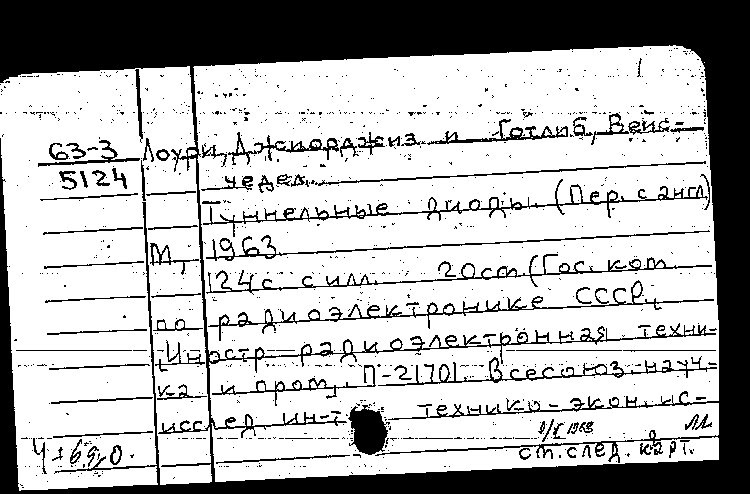 63-3 Лоури, Джиорджиз и Готлиб, Вейс-
5124 чедел.
Туннельные диоды. (Пер. с англ)
М, 1963
124 с. с илл. 20 cm (Гос. ком.
по радиоэлектронике СССР,
Иностр радиоэлектронная техни-
ка и пром, П-21701. Всесоюз. науч-
исслед ин-т технико-экон. ис-
см. след. карт.